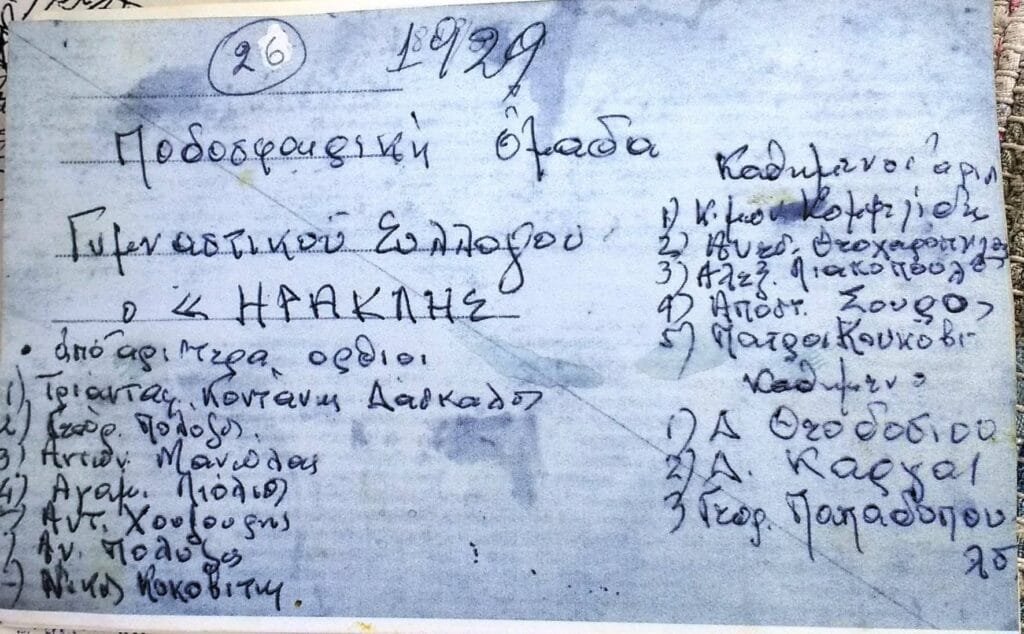 26 1929
Ποδοσφαιρική ὁμαδα
Γυμναστικού Συλλόγου
ο « ΗΡΑΚΛΗΣ
• άπό αριστερα, ορθιοι
1) Τριανταφ. Κοντάνης Δάσκαλος
2) Γεωρ. Πολυζος.
3) Αντων. Μανωλας
4) Αγαμ. Λιόλιος
5) Αντ. Χουζουρης
) Αν. Πολυζος
) Νικος Κοκοβιτης.
Καθημενοι άρισ
1) Κιμων
2) Θεοχαροπουλος
3) Αλεξ. Λιακοπουλος
4) Αποστ. Σουρος
5) Πατροκ Κουκοβι
Καθημενο
1) Δ Θεοδοσιου
2) Δ.
3) Γεωρ. Παπαδοπου
λο